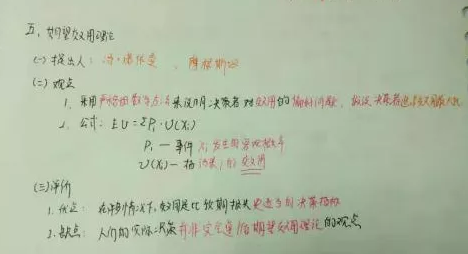 五、期望效用理论
(一) 提出人: 冯·诺依曼、摩根斯坦
(二) 观点
1. 采用严格的数学方法来说明决策者对效用的偏好问题, 假设决策者追求效用最大化
2. 公式: EU=ΣPi·U(Xi)
Pi — 事件Xi发生的客观概率
U(Xi) — 指结果i的效用
(三) 评价
1. 优点: 在许多情况下, 效用是比较期望损失更适当的决策指标
2. 缺点: 人们的实际决策并非完全遵循期望效用理论的观点